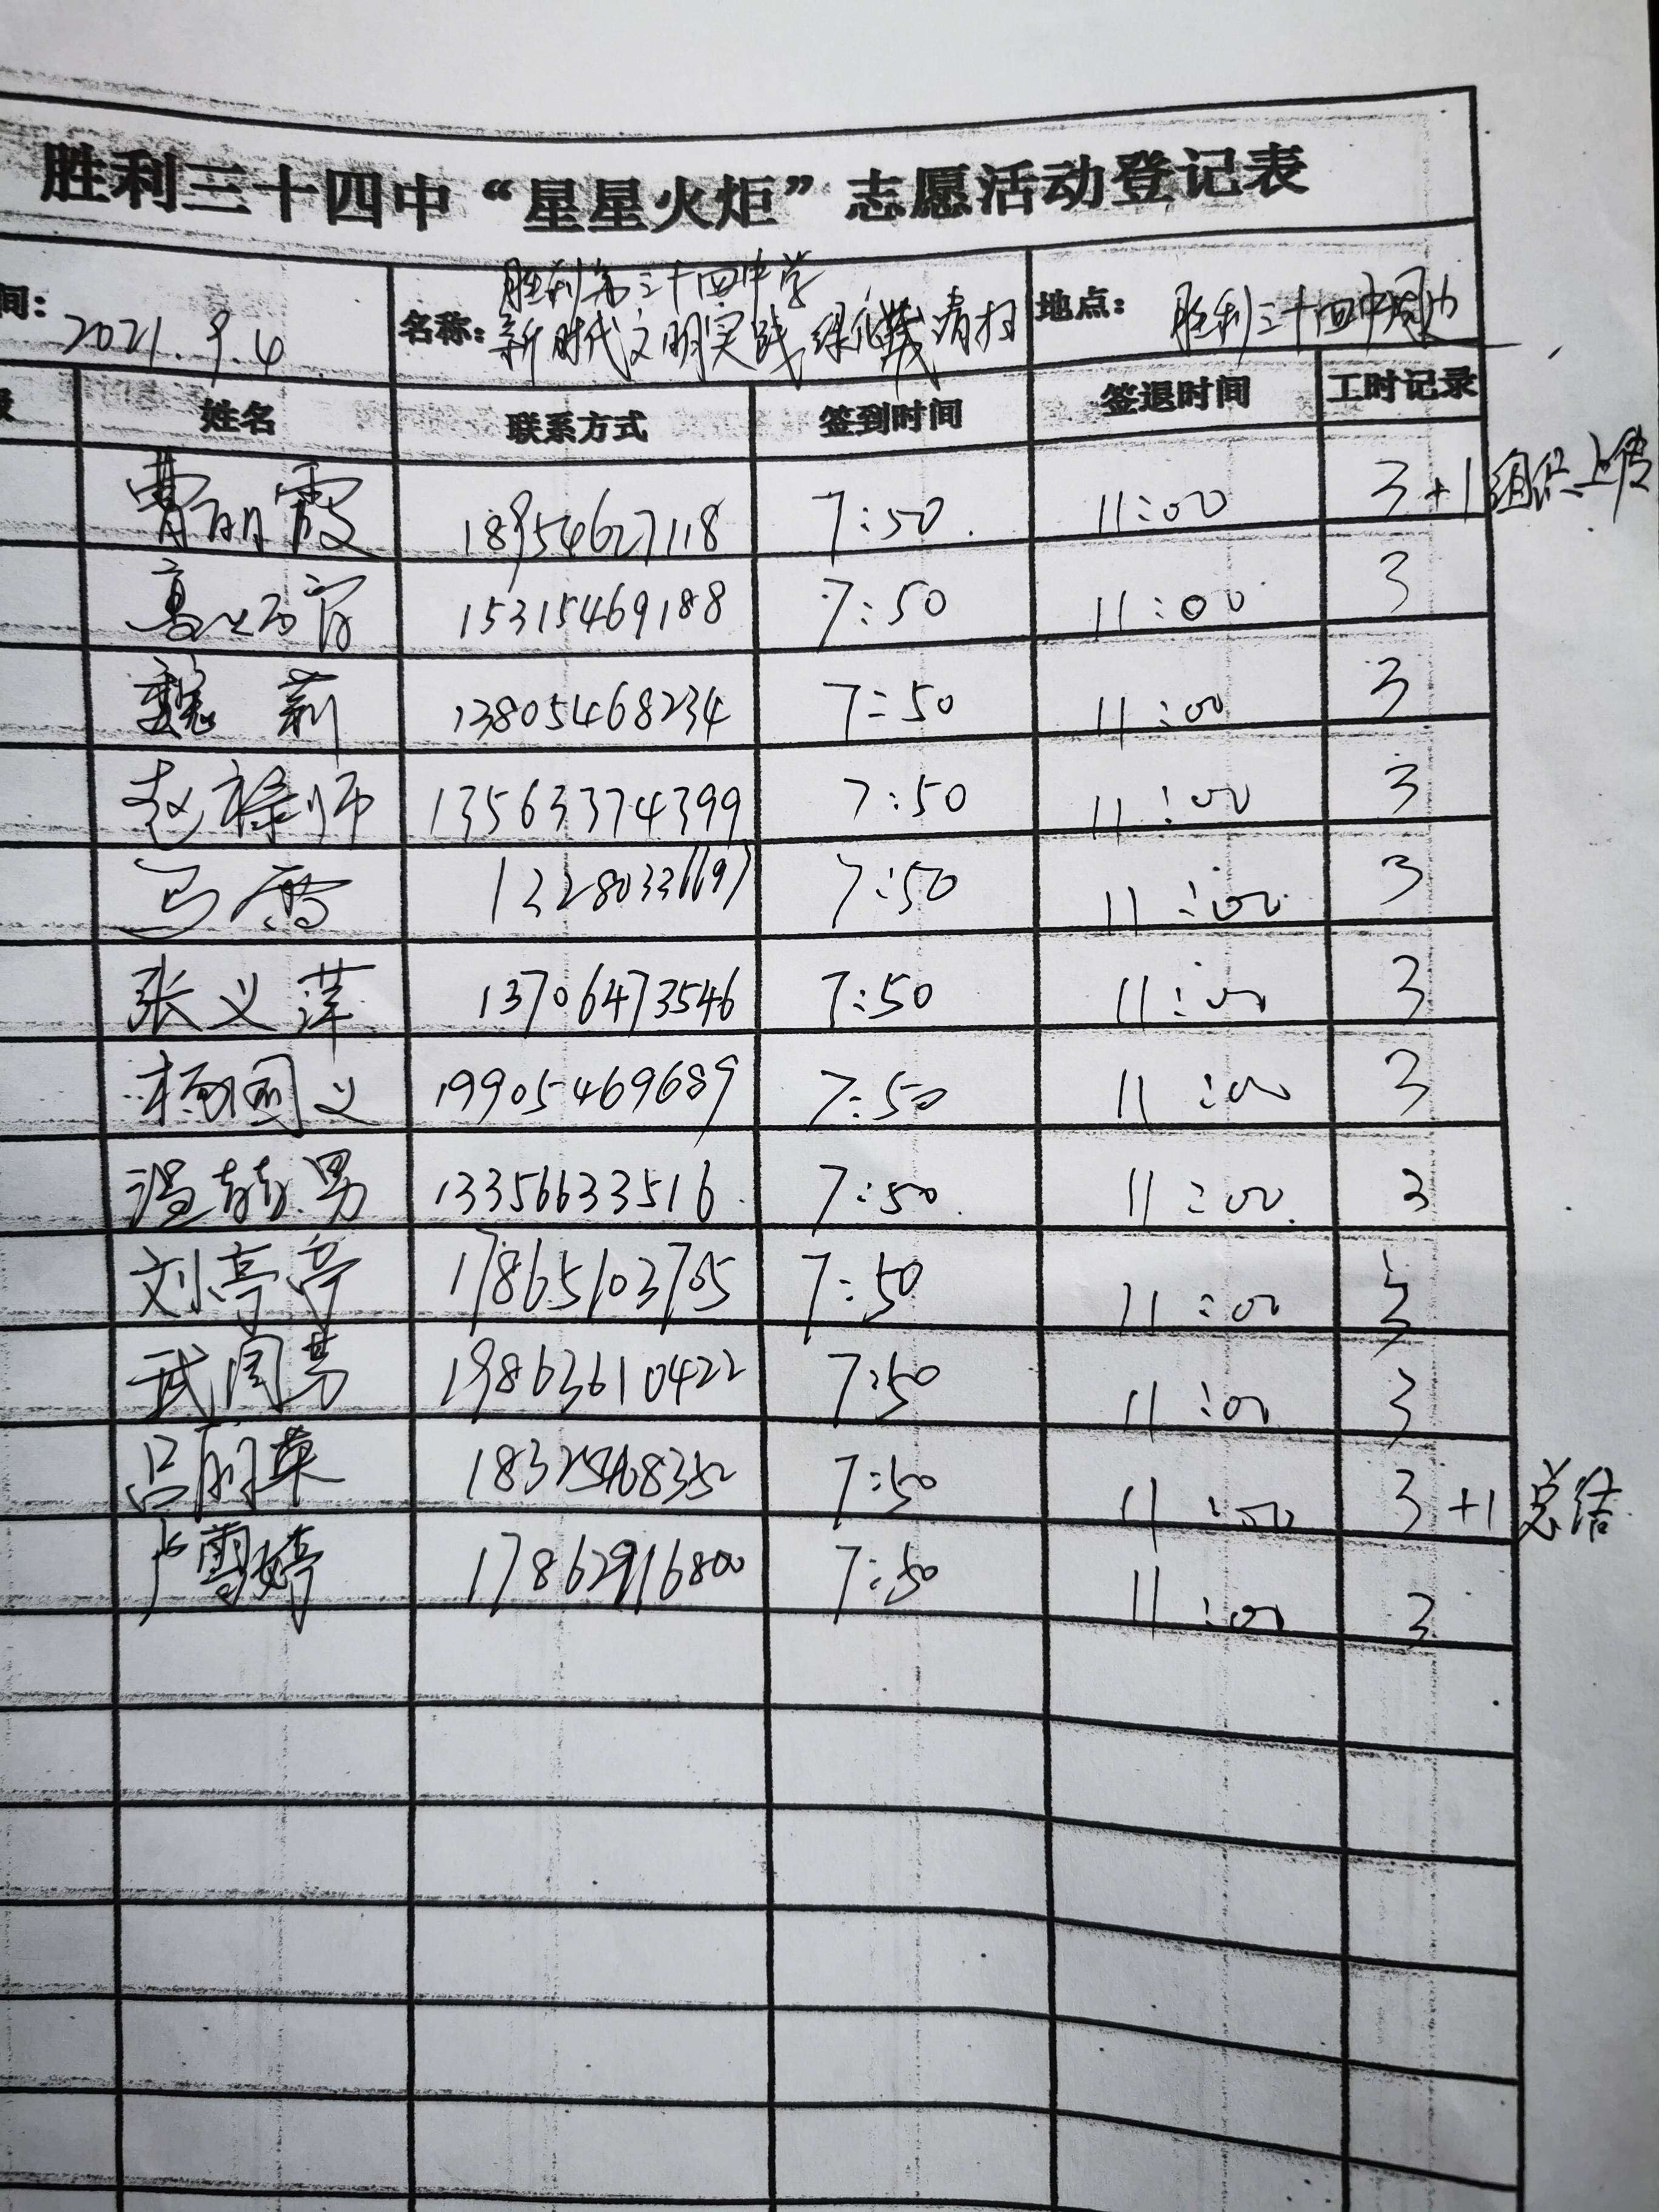 胜利三十四中“星星火炬”志愿活动登记表
间: 2021.9.4 名称: 胜利第三十四中学 地点: 胜利三十四中周边
新时代文明实践 绿化带清扫
姓名 联系方式 签到时间 签退时间 工时记录
曹丽霞 18954627118 7:50 11:00 3+1 组织上传
高 15315469188 7:50 11:00 3
魏莉 13805468234 7:50 11:00 3
赵 师 13563374399 7:50 11:00 3
马雪 7:50 11:00 3
张义萍 13706473546 7:50 11:00 3
杨国义 19905469689 7:50 11:00 3
温 男 13356633516 7:50 11:00 3
刘亭亭 17865103705 7:50 11:00 3
武闰男 19863610422 7:50 11:00 3
吕丽英 7:50 11:00 3+1 总结
卢雪婷 17862916800 7:50 11:00 3